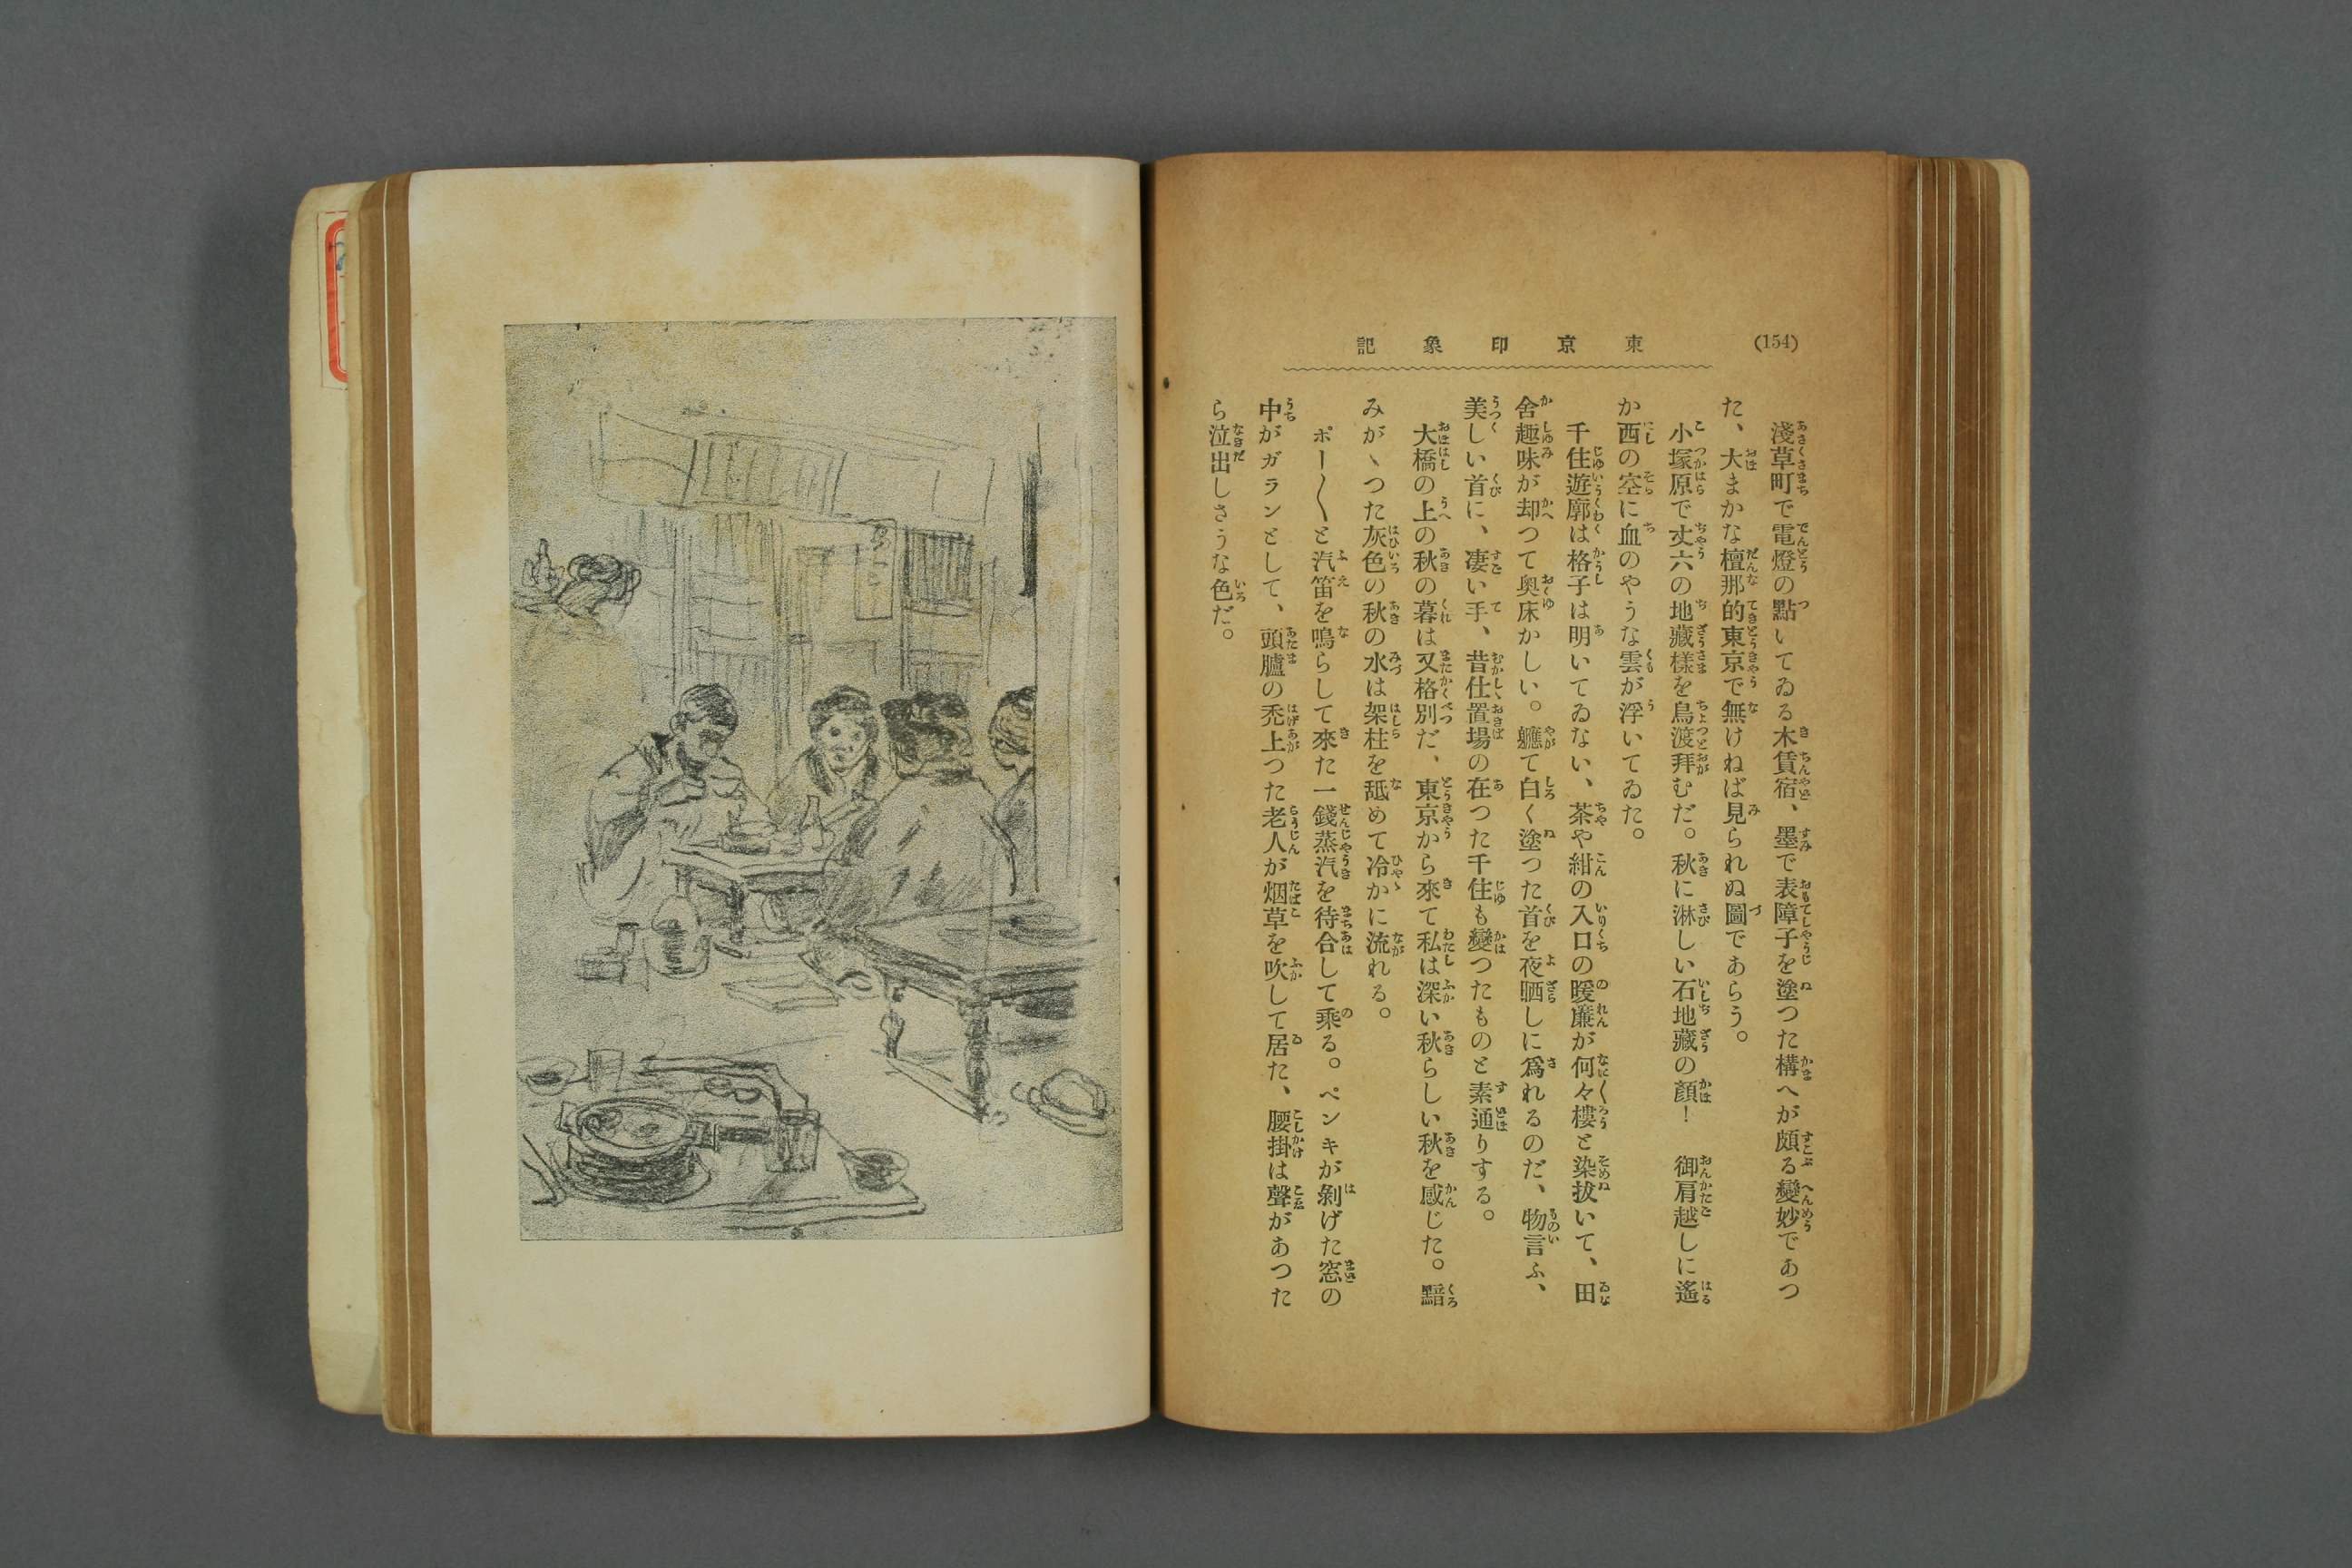 (154)
東京印象記
淺草町で電燈の點いてゐる木賃宿、墨で表障子を塗つた構へが頗る變妙であつ
た、大まかな檀那的東京で無けねば見られぬ圖であらう。
小塚原で丈六の地藏樣を鳥渡拜むだ。秋に淋しい石地藏の顏！　御肩越しに遙
か西の空に血のやうな雲が浮いてゐた。
千住遊廓は格子は明いてゐない、茶や紺の入口の暖簾が何々樓と染拔いて、田
舍趣味が却つて奧床かしい。軈て白く塗つた首を夜晒しに爲れるのだ、物言ふ、
美しい首に、凄い手、昔仕置場の在つた千住も變つたものと素通りする。
大橋の上の秋の暮は又格別だ、東京から來て私は深い秋らしい秋を感じた。黯
みがゝつた灰色の秋の水は架柱を舐めて冷かに流れる。
ポー〳〵と汽笛を鳴らして來た一錢蒸汽を待合して乘る。ペンキが剝げた窓の
中がガランとして、頭臚の禿上つた老人が烟草を吹して居た、腰掛は聲があつた
ら泣出しさうな色だ。